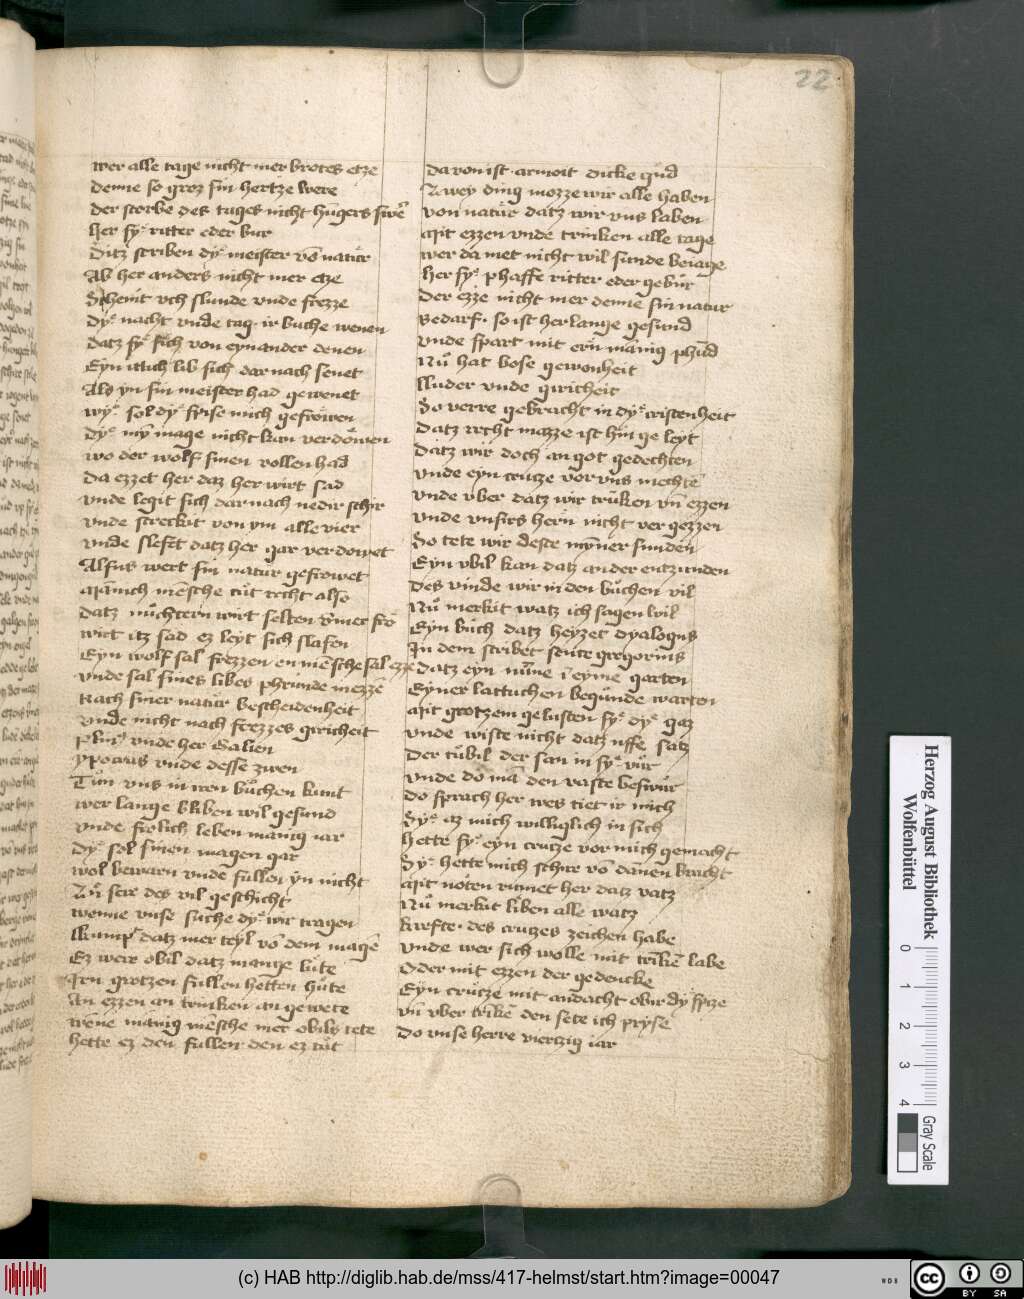 22
wer alle tage nicht mer brotes etze
denne so groz sin hertze were
der storbe des tages nicht hūgers swēr
her sy ritter eder bur
Ditz scriben dy meister vō natůr
Ab her anders nicht mer etze
vch slunde vnde frezze
dy nacht vnde tag ir buche wenen
datz sy sich von eynander denen
Eyn itlich lib sich dar nach senet
Als yn sin meister had gewenet
wy sol dy spise mich gefrowen
dy my mage nicht kan verdowen
wo der wolf sinen vollen had
da ezzet her daz her wirt sad
vnde legit sich dar nach nedir schir
vnde streckit von ym alle vier
vnde slefet datz her gar verdowet
Alsus wert sin natur gefrowet
Manich mēsche tůt recht also
datz nůchtern wirt selten ymer fro
wirt itz sad ez leyt sich slafen
Eyn wolf sal frezzen en mēsche sal ezze
vnde sal sines libes phrunde mezzē
Nach siner natur bescheidenheit
vnde nicht nach frezzes giricheit
Plinꝰ vnde her Galien
ypocras vnde desse zwen
Tůn vns in iren bůchen kunt
wer lange bliben wil gesund
vnde frolich leben manig iar
dy sol sinen magen gar
wol bewarn vnde fullen yn nicht
Zů sere des vil geschicht
wenne vnse suche dy wir tragen
kumpt datz mer teyl vō dem magē
Ez were obil datz mange lůte
Irn grotzen fullen hetten hůte
An ezzen an trinken an gewete
wēne manig mēsche mer obils tete
hette ez den fullen den ez tůt
da von ist armoit dicke gůd
Zwey ding mozze wir alle haben
von natůr datz wir vns laben
Mit ezzen vnde trinken alle tage
wer da met nicht wil sunde beiage
her sy phaffe ritter eder gebůr
der ezze nicht mer denne sin natur
Bedarf so ist her lange gesund
vnde spart mit ern manig phūd
Nů hat bose gewonheit
luder vnde giricheit
So verre gebracht in dy cristenheit
datz recht mazze ist hin geleyt
datz wir doch an got gedechten
vnde eyn cruce vor vns mechtē
vnde vber datz wir trůken vn̄ ezzen
vnde vnsirs hern nicht vergezzen
So tete wir deste mynner sunden
Eyn vbil kan datz ander entzunden
des vinde wir in den bůchen vil
Nů merkit watz ich sagen wil
Eyn bůch datz heyzet dyalogus
In dem scribet sente gregorius
datz eyn nūne ī eyme garten
Eyner lattuchen begunde warten
Mit grotzem gelusten sy dy gaz
vnde wiste nicht datz uffe satz
der tůbil der san in sy vůr
vnde do mā den vaste beswůr
do sprach her wes tiet ir mich
Sy az mich williglich in sich
hette sy eyn cruce vor mich gemacht
Sy hette mich schire vō dannen bracht
Mit noten rumet her datz vatz
Nů merkit liben alle watz
krefte des cruzes zeichen habe
vnde wer sich wolle mit trīkē labe
Oder mit ezzen der gedencke
Eyn crutze mit andacht obir dy spize
vn̄ vber trīkē den sete ich pryse
do vnse herre viertzig iar
Herzog August Bibliothek
Wolfenbüttel
0 1 2 3 4
Gray Scale
(c) HAB http://diglib.hab.de/mss/417-helmst/start.htm?image=00047
WDB
cc BY SA